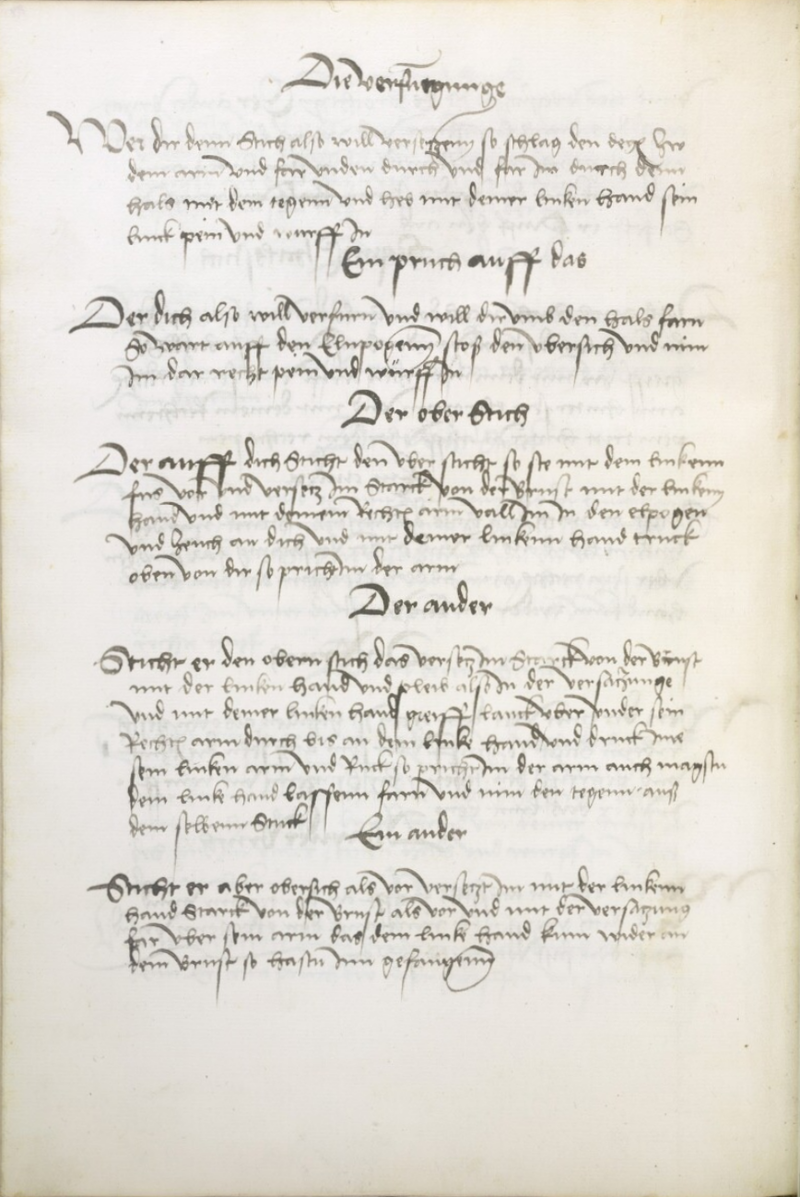 Die verfürgunge
Wer dir denn Stich also will versetzenn so schlag den degen Zw
dem arm vnd far vnden durch vnd far im durch denn
hals mit dem tegenn vnd heb mit deiner linken hand sein
linck pein vnd wurff in
Ein pruch auff das
Der dich also will verfurn vnd will dir vmb den hals farn
So wart auff den Elnpogenn stos den vbersich vnd nim
Im dar recht pein vnd würff In
Der ober Stich
Der auff dich Sticht den vber sticht so ste mit dem linkenn
fus vor vnd versetz Im Starck von der Brust mit der linkenn
hand vnd mit deinem Rechten arm vall Im In den elpogen
vnd Zeuch an dich vnd mit deiner linkenn hand truck
oben von dir so prichstu Im der arm
Der ander
Sticht er den obern stich das versetz Im Starck von der Brust
mit der linken hand vnd pleib also In der versatzunge
vnd mit deiner linken hand greiff lanck vber vnder sein
Rechten arm durch bis an dein linke hand vnd druck ine
sein linken arm vnd Ruck so pricht Im der arm auch magstu
dein linke hand lassenn farn vnd nim den tegenn auß
dem selbenn Stuck
Ein ander
Sticht er aber obersich als vor versetzt Im mit der linkenn
hand Starck von der Brust als vor vnd mit der versatzung
far vber sein arm das dein linke hand kum wider an
dein Brust so hastu Inn gefangenn